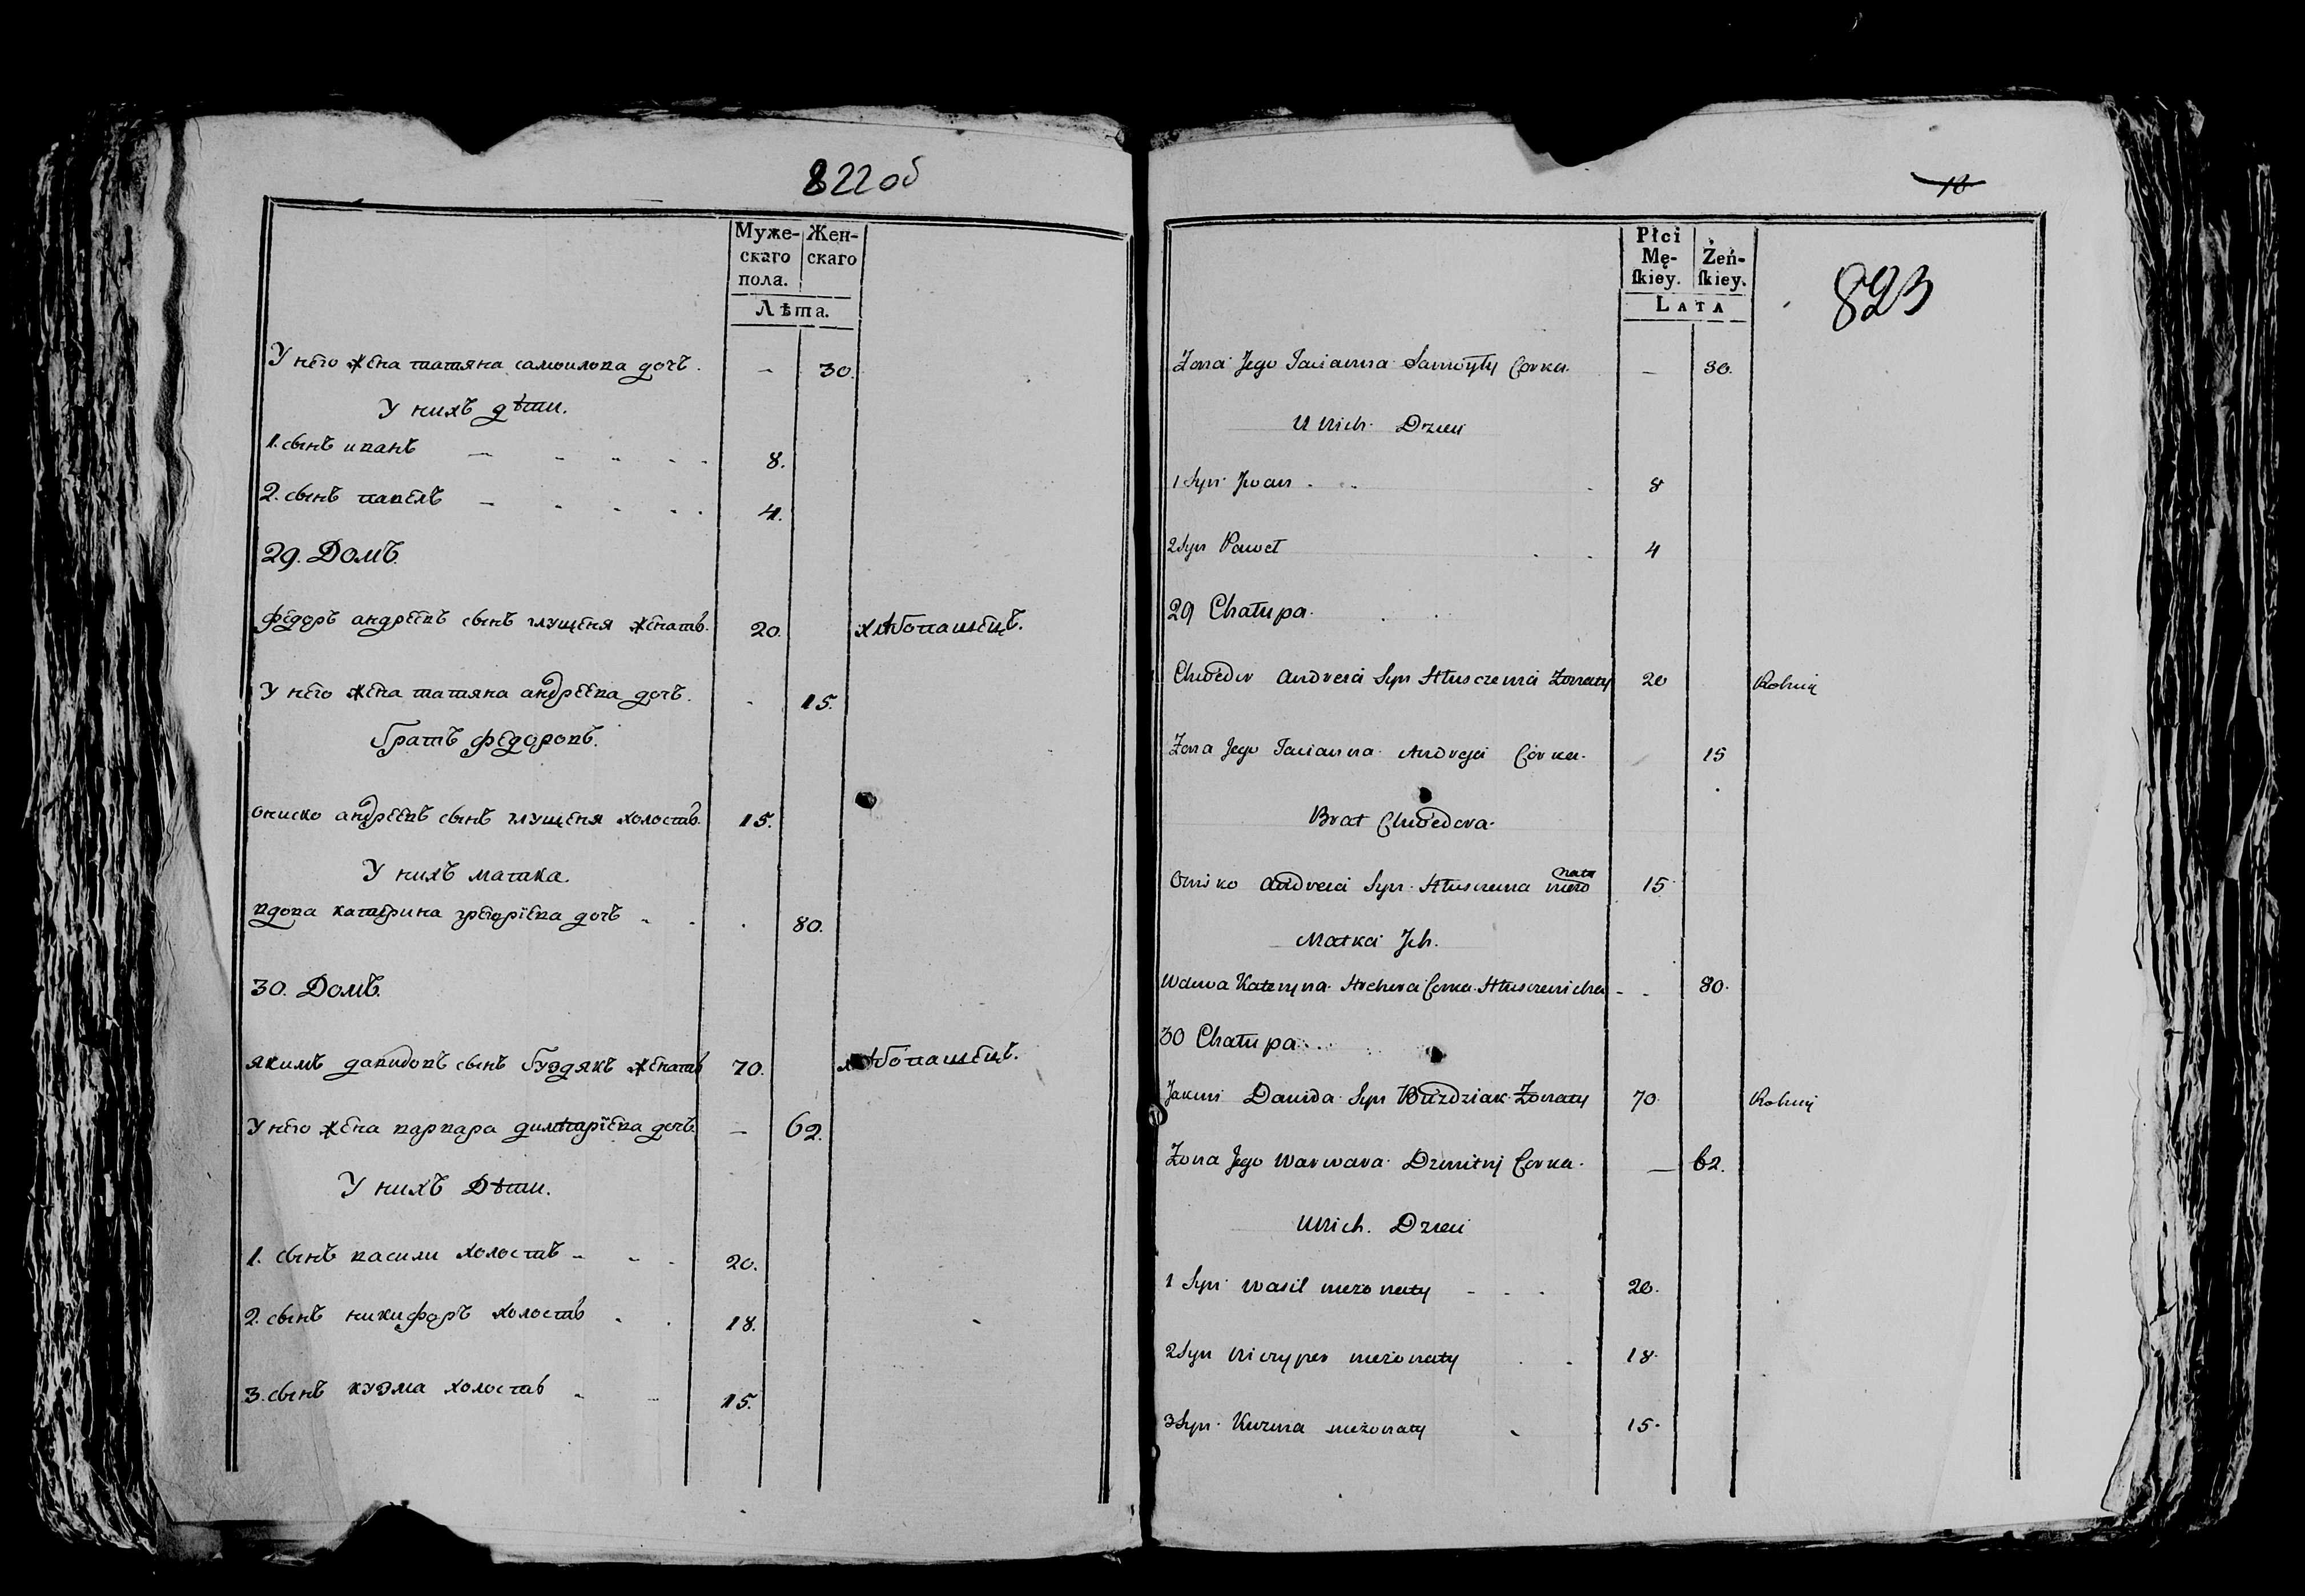 822об
Муже-
скаго
пола.
Жен-
скаго
Лѣта.
У него жена татяна самоилова дочь. - 30.
У нихъ дѣти.
1. сынъ иванъ 8.
2. сынъ павелъ 4.
29. Домъ.
федоръ андреевъ сынъ глущеня женатъ. 20. хлѣбопашецъ.
У него жена татяна андреева дочь. 15.
братъ федоровъ.
ониско андреевъ сынъ глущеня холостъ. 15.
У нихъ матка.
вдова катерина григорїева дочь 80.
30. Домъ.
якимъ давидовъ сынъ буздякъ женатъ 70. хлѣбопашецъ.
У него жена варвара димитрїева дочь. — 62.
У нихъ Дѣти.
1. сынъ васили холостъ 20.
2. сынъ никифоръ холостъ 18.
3. сынъ кузма холостъ 15.
18
823
Płci
Mę-
ſkiey.
Żeń-
ſkiey.
LATA
Żona Jego Tacianna Samoyły Corka. — 30.
U Nich Dzieci
1 Syn Jwan 8
2 Syn Paweł 4
29 Chałupa.
Chwedor Andreia Syn Hłusczenia Żonaty 20 Rolnik
Żona Jego Tacianna Andreja Córka. 15
Brat Chwedora.
Onisko Andreia Syn Hłusczenia nieżonaty 15
Matka Jch.
Wdowa Kateryna Hrehora Corka Hłusczenicha - - 80.
30 Chałupa
Jakim Dawida Syn Buzdziak Żonaty 70. Rolnik
Żona Jego Warwara Dzmitrij Corka. — 62.
U Nich Dzieci
1 Syn Wasil nieżonaty 20.
2 Syn Niczyper nieżonaty 18.
3 Syn Kuzma nieżonaty 15.